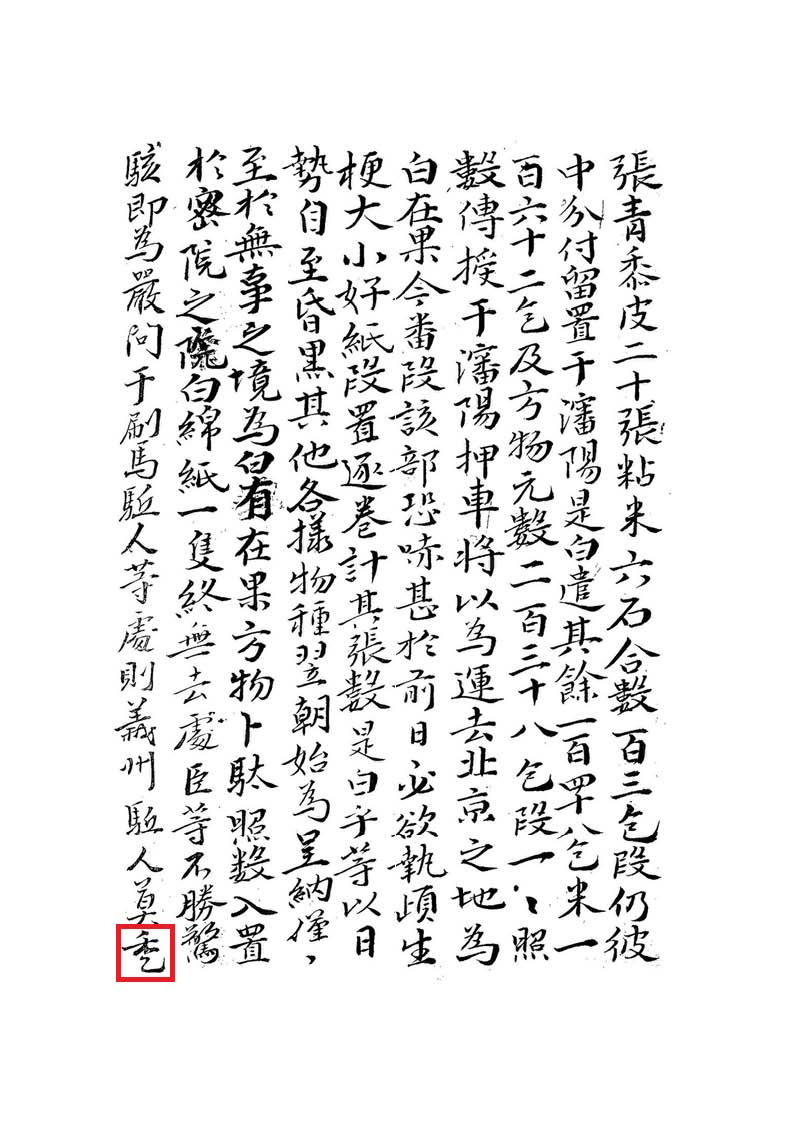 張青黍皮二十張粘米六石合數百三包段仍彼
中分付留置于瀋陽是白遣其餘一百四十八包米一
百六十二包及方物元數二百三十八包段一〻照
數傳授于瀋陽押車將以為運去北京之地為
白在果今番段該部恐哧甚於前日必欲執頉生
梗大小好紙段置逐卷計其張數是白乎等以日
勢自至昏黒其他各樣物種翌朝始為呈納僅〻
至於無事之境為白有在果方物卜馱照數入置
於密院之際白綿紙一隻終無去處臣等不勝驚
駭即為嚴問于刷馬駈人等處則義州駈人莫